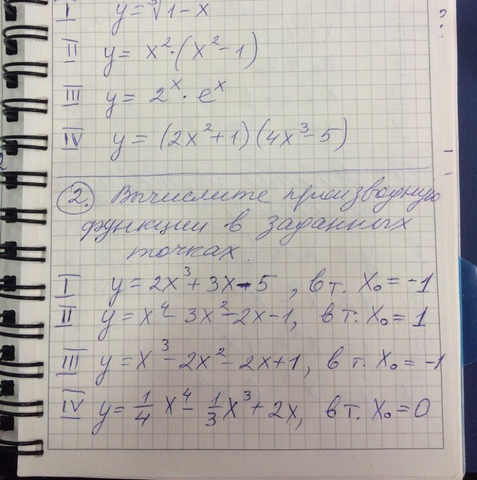 I y = ∛1-x
II y = x²·(x²-1)
III y = 2ˣ·eˣ
IV y = (2x²+1)(4x³-5)
2. Вычислите производную
функции в заданных
точках.
I y = 2x³+3x-5, в т. X₀ = -1
II y = x⁴-3x²-2x-1, в т. X₀ = 1
III y = x³-2x²-2x+1, в т. X₀ = -1
IV y = 1/4 x⁴ - 1/3 x³ + 2x, в т. X₀ = 0